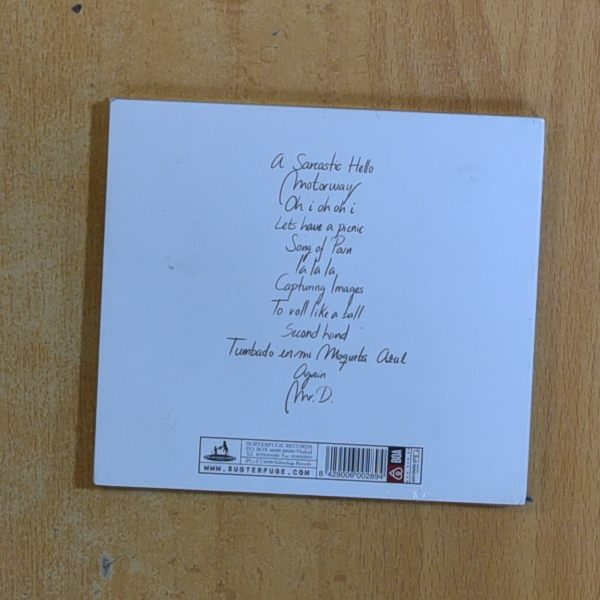 A Sarcastic Hello
Motorway
Oh i oh oh i
Lets have a picnic
Song of Pain
la la la
Capturing Images
To roll like a ball
Second hand
Tumbado en mi Moqueta Azul
Again
Mr. D.
SUBTERFUGE RECORDS
P.O. BOX Madrid
WWW.SUBTERFUGE.COM
8 429006 002894
BOA